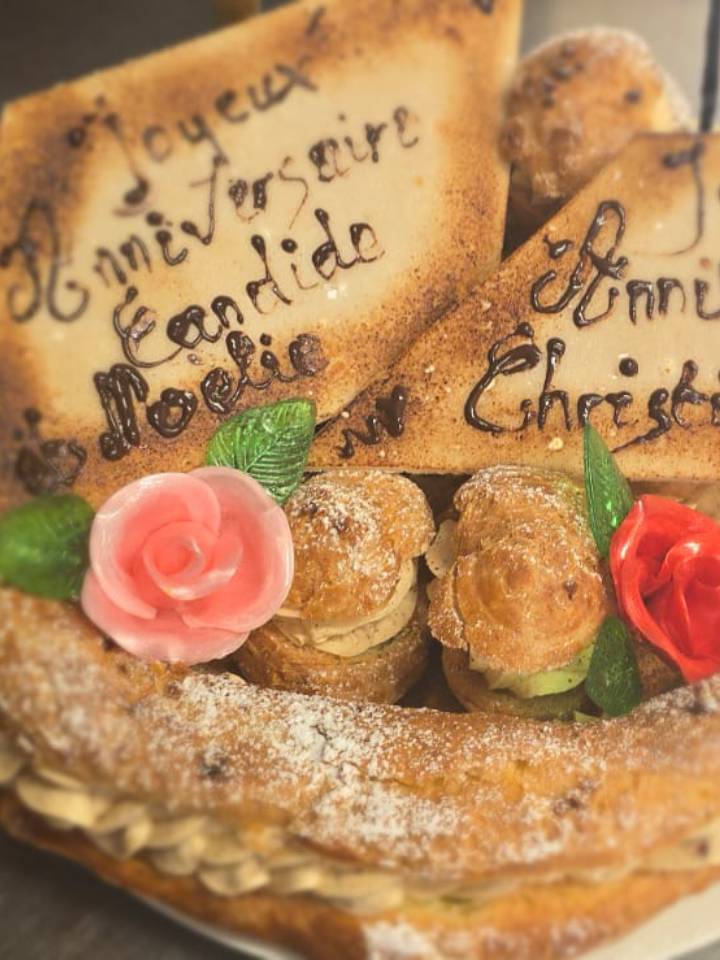 Joyeux
Anniversaire
Candide
Noèlie
J
Anni
Christi